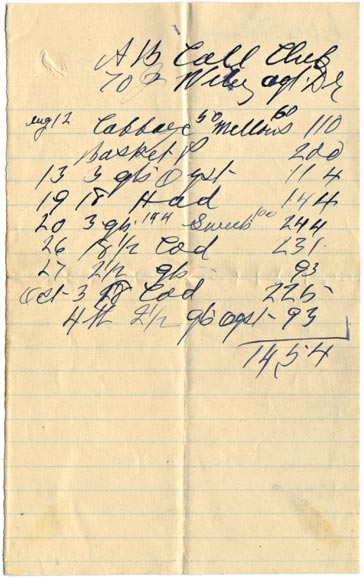 A B Call Club
To J Wiley agt Dr
Aug 12 Cabbage 50 Mellons 60 110
Basket P 200
13 3 qts Oyst 114
19 18 Had 144
20 3 qts 144 Sweets 100 244
26 18 1/2 Cod 231
27 2 1/2 qts 93
Oct 3 18 Cod 225
4th 2 1/2 qts oyst 93
14,54